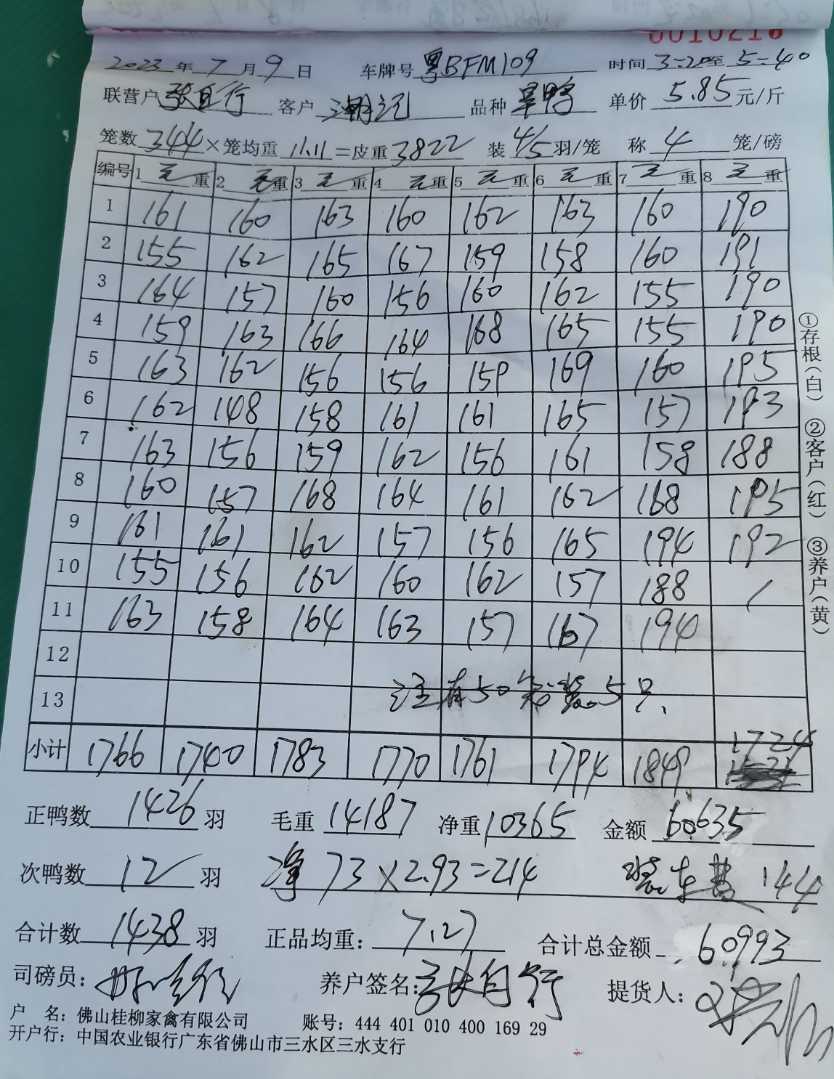 2023 年 7 月 9 日 车牌号 粤BFM109 时间 3:20至 5:40
联营户 客户 潮记 品种 单价 5.85 元/斤
笼数 344 × 笼均重 11.11 = 皮重 3822 装 4/5 羽/笼 称 4 笼/磅
编号 1 毛重 2 毛重 3 毛重 4 毛重 5 毛重 6 毛重 7 毛重 8 毛重
1 161 160 163 160 162 163 160 190
2 155 162 165 167 159 158 160 191
3 164 157 160 156 160 162 155 190
4 159 163 166 164 168 165 155 190
5 163 162 156 156 159 169 160 195
6 162 148 158 161 161 165 157 193
7 163 156 159 162 156 161 158 188
8 160 157 168 164 161 162 168 195
9 161 161 162 157 156 165 194 192
10 155 156 162 160 162 157 188 /
11 163 158 164 163 157 167 194
12
13 注有50笼装5只
小计 1766 1740 1783 1770 1761 1794 1849 1724
正鸭数 1426 羽 毛重 14187 净重 10365 金额 60635
次鸭数 12 羽 净 73×2.93=214 装车费 144
合计数 1438 羽 正品均重: 7.27 合计总金额 60993
司磅员: 养户签名: 提货人:
户 名: 佛山桂柳家禽有限公司 账号: 444 401 010 400 169 29
开户行: 中国农业银行广东省佛山市三水区三水支行
①存根(白) ②客户(红) ③养户(黄)